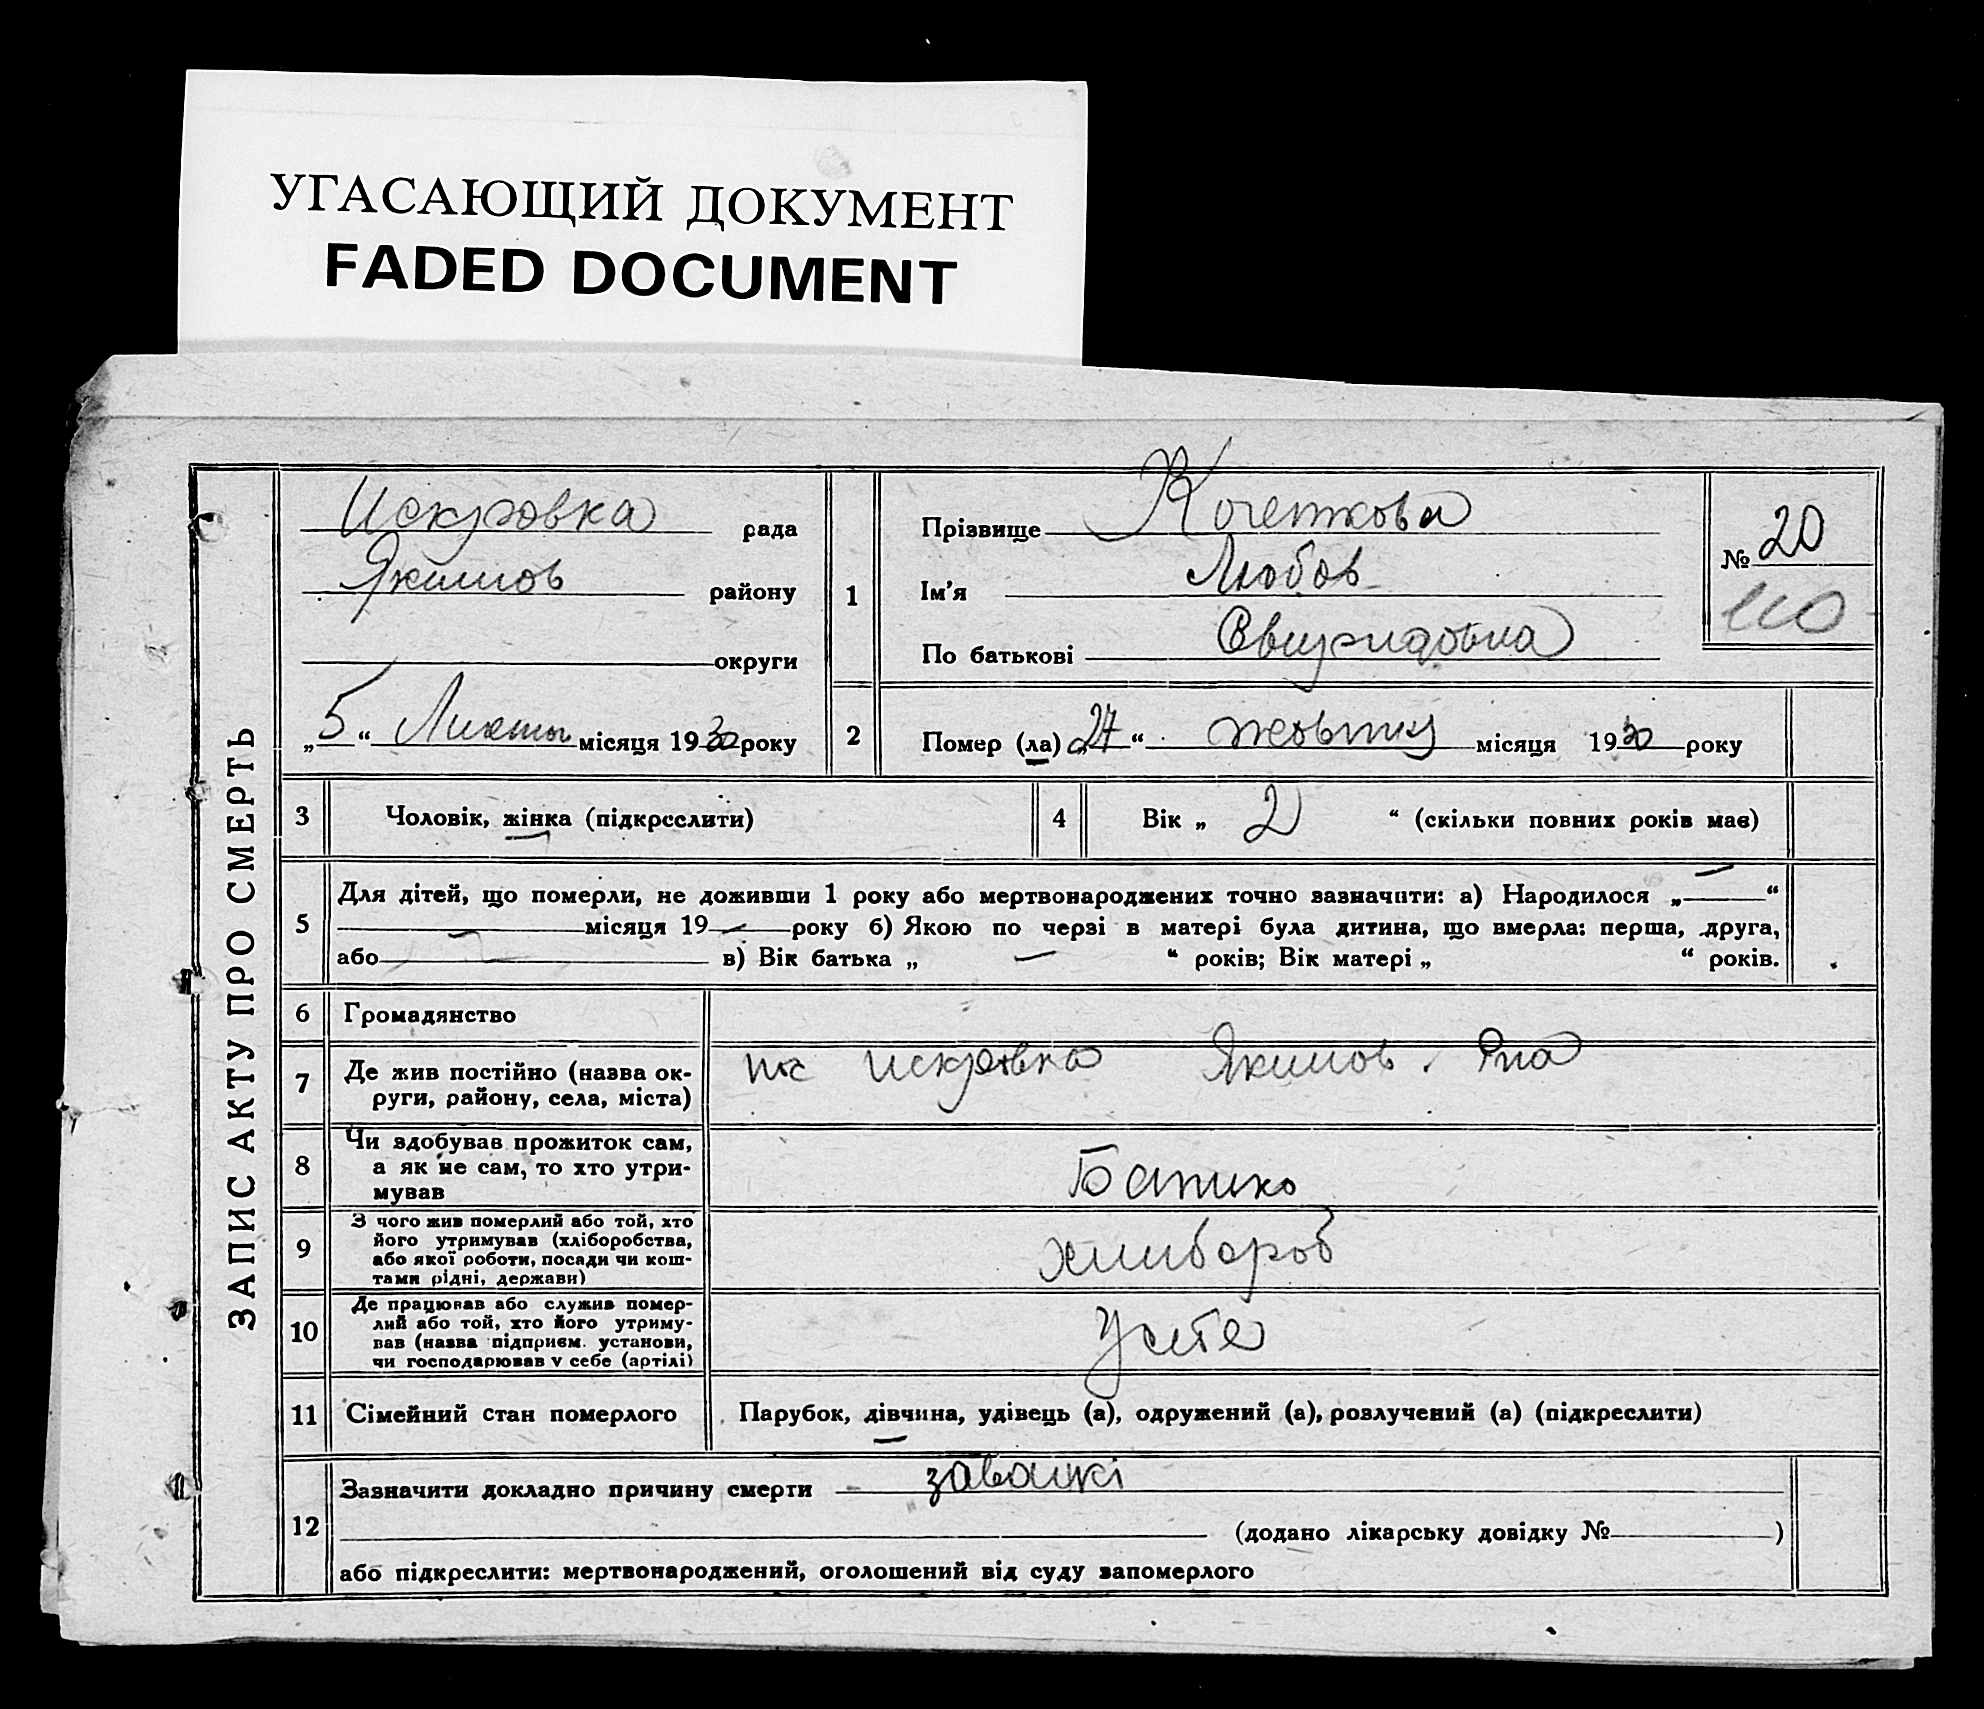 УГАСАЮЩИЙ ДОКУМЕНТ
FADED DOCUMENT
ЗАПИС АКТУ ПРО СМЕРТЬ
Искровка рада
Якимов району
округи
„5“ Листоп місяця 1930 року
1
Прізвище Кочеткова
Ім'я Любов
По батькові Свиридовна
№ 20
110
2
Помер (ла) „27“ жовтня місяця 1930 року
3 Чоловік, жінка (підкреслити)
4 Вік „ 2 “ (скільки повних років має)
5 Для дітей, що померли, не доживши 1 року або мертвонароджених точно зазначити: а) Народилося „—“
місяця 19— року б) Якою по черзі в матері була дитина, що вмерла: перша, друга,
або — в) Вік батька „ — “ років; Вік матері „ “ років.
6 Громадянство
7 Де жив постійно (назва ок-
руги, району, села, міста)
Искровка Якимов. Р-на
8 Чи здобував прожиток сам,
а як не сам, то хто утри-
мував
Батько
9 З чого жив померлий або той, хто
його утримував (хліборобства,
або якої роботи, посади чи кош-
тами рідні, держави)
хлибороб
10 Де працював або служив помер-
лий або той, хто його утриму-
вав (назва підприєм. установи,
чи господарював у себе (артілі)
У себе
11 Сімейний стан померлого
Парубок, дівчина, удівець (а), одружений (а), розлучений (а) (підкреслити)
12 Зазначити докладно причину смерти завашкі
(додано лікарську довідку № )
або підкреслити: мертвонароджений, оголошений від суду запомерлого